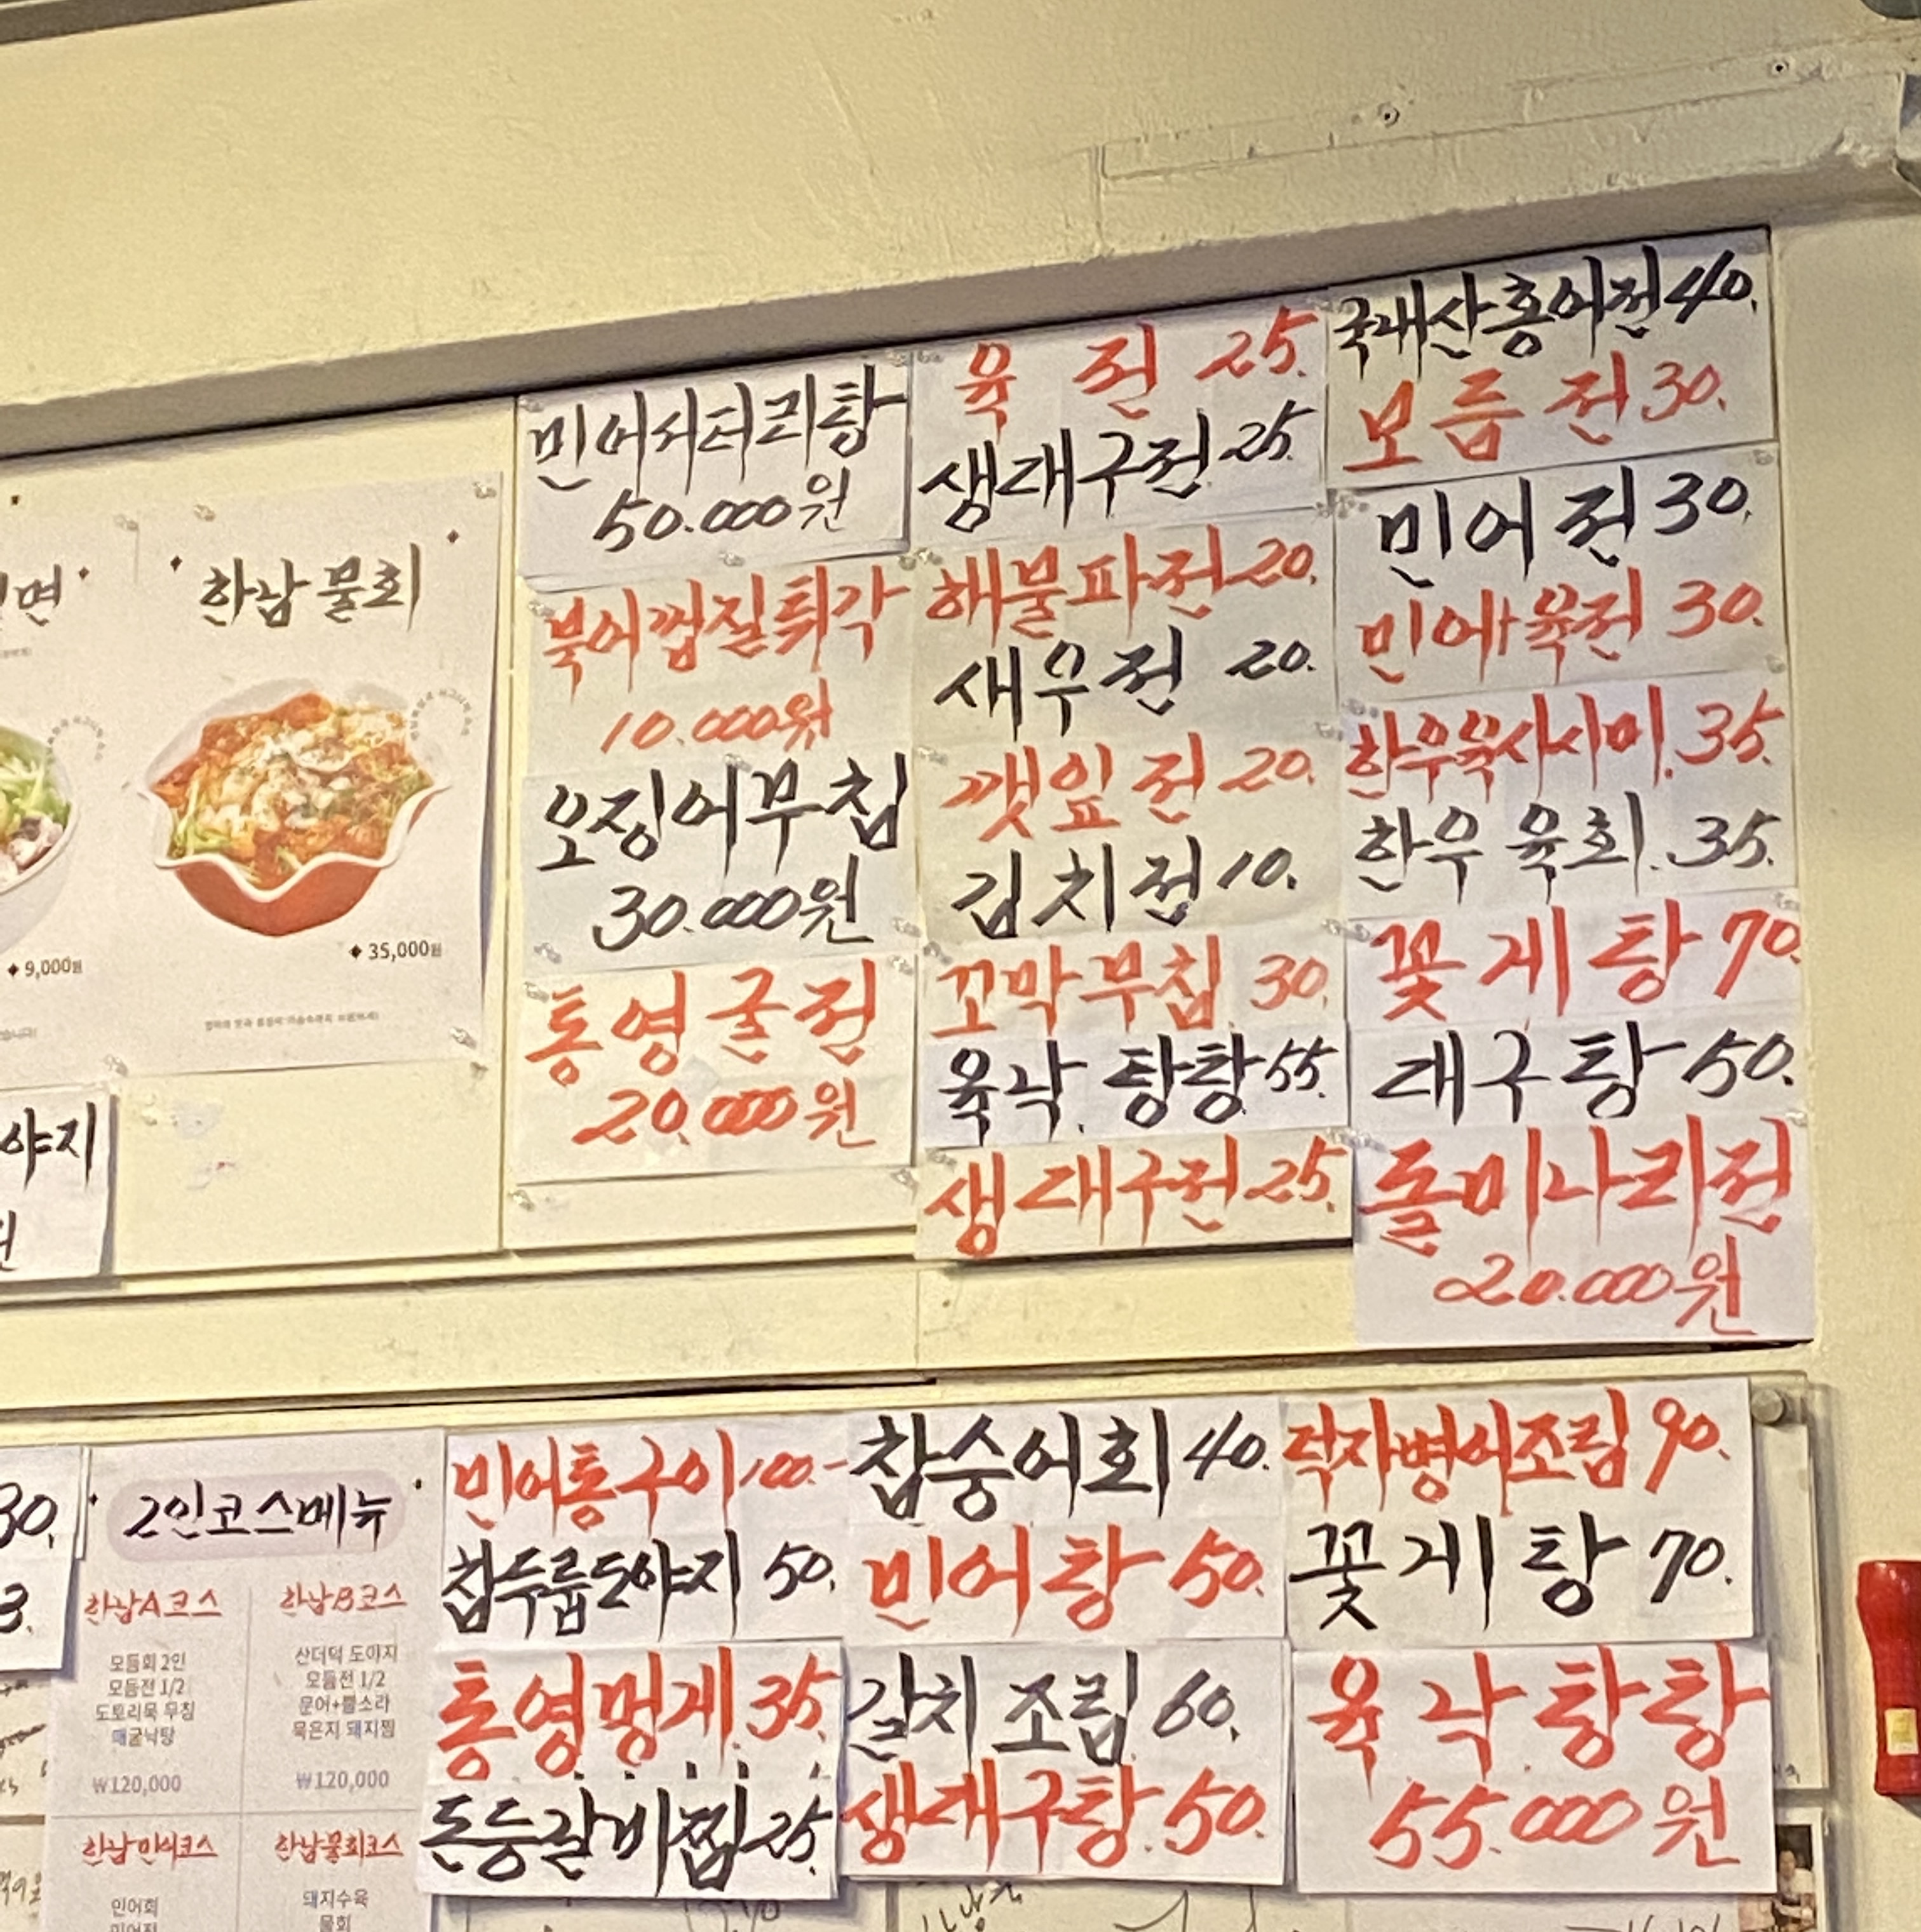 한남 물회
35,000원
면
9,000원
야지
민어서더리탕
50.000원
북어껍질튀각
10.000원
오징어무침
30.000원
통영굴전
20.000원
육전 25.
생대구전 25.
해물파전 20.
새우전 20.
깻잎전 20.
김치전 10.
꼬막무침 30.
육낙.탕탕 55.
생대구전 25.
국내산홍어전 40.
모듬전 30.
민어전 30.
민어+육전 30.
한우육사시미.35.
한우육회.35.
꽃게탕 70.
대구탕 50.
돌미나리전
20.000원
30.
3.
2인코스메뉴
한남A코스
모듬회 2인
모듬전 1/2
도토리묵 무침
매굴낙탕
₩120,000
한남B코스
산더덕 도야지
모듬전 1/2
문어+뿔소라
묵은지 돼지찜
₩120,000
한남민어코스
민어회
민어전
한남물회코스
돼지수육
물회
민어통구이 100.-
참두릅도야지 50.
통영멍게.35.
돈등갈비찜.25.
참숭어회 40.
민어탕 50.
갈치조림 60.
생대구탕.50.
덕자병어조림 90.
꽃게탕 70.
육낙탕탕
55.000원